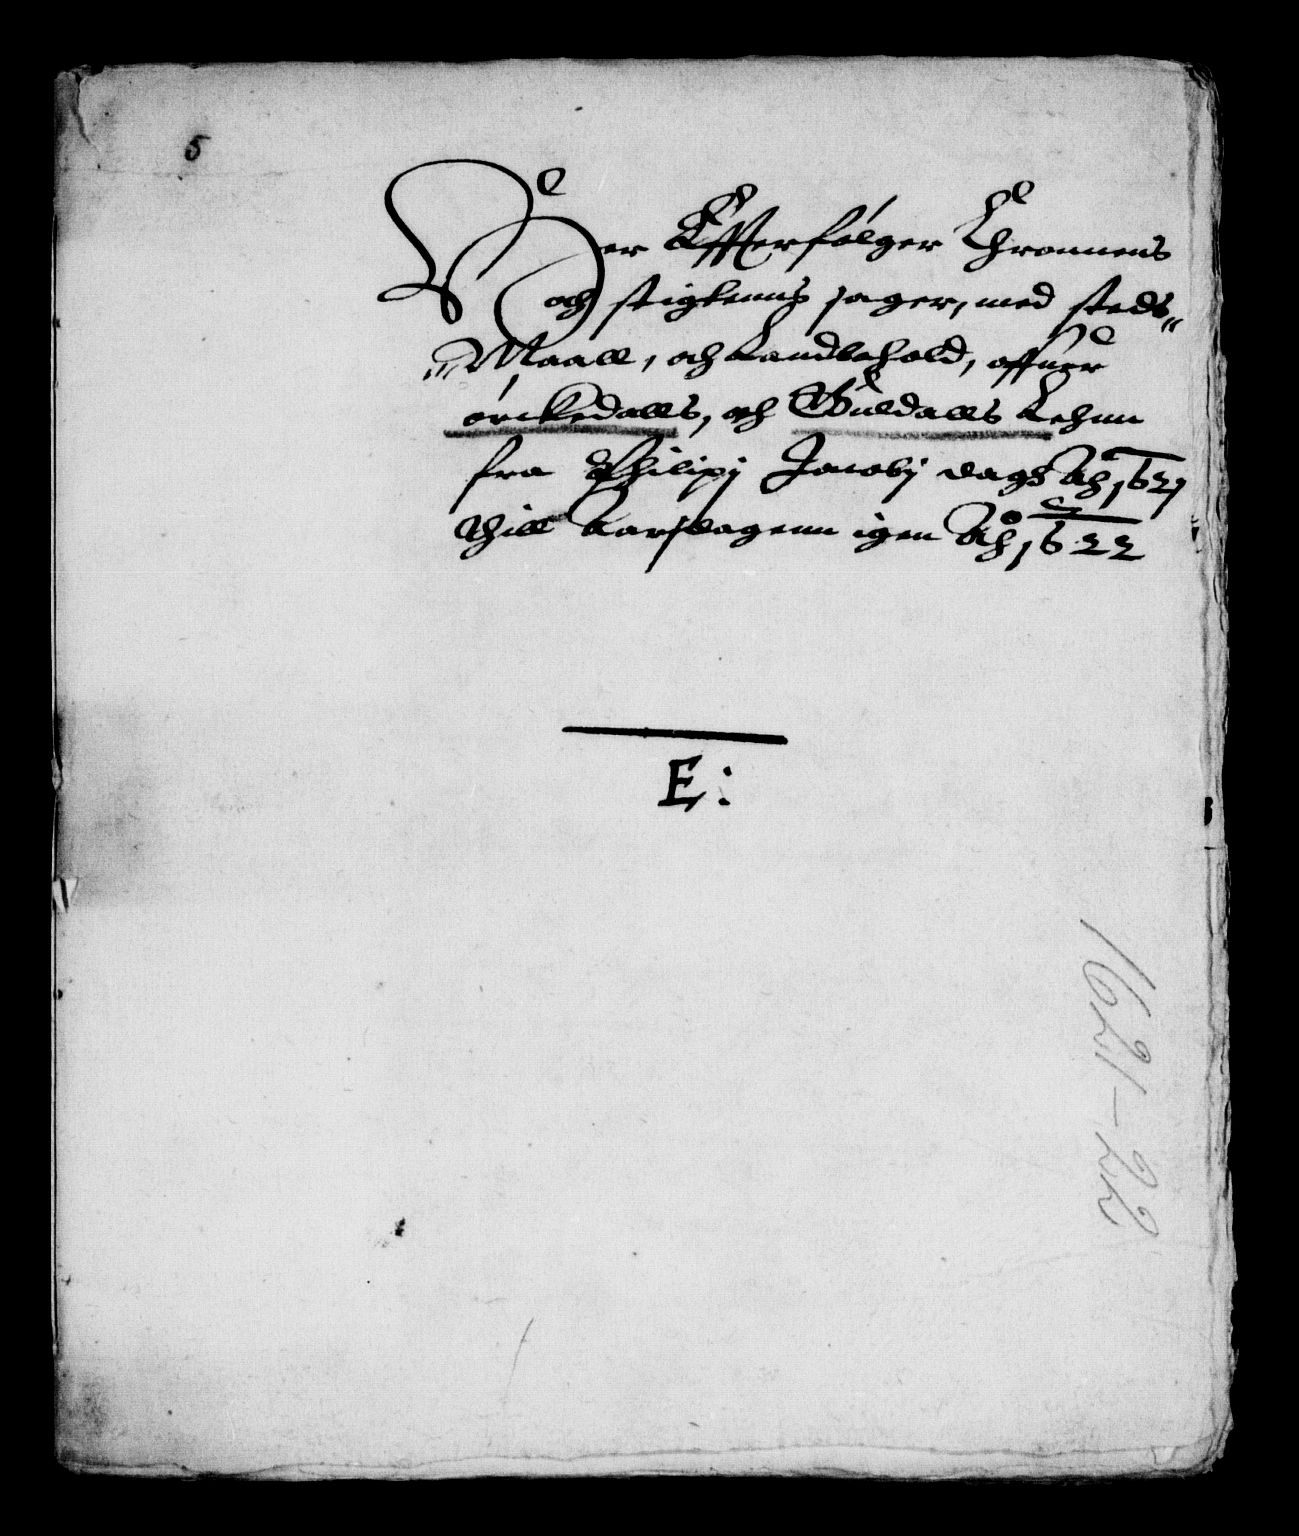 5
Her Effterfølger Chronnens
och stigtenns sager, med steds„
„Maall, och Landbohold, offuer
ørckedalls, och Guldalls Lehnn
fra Philipj Jacobj dag Aō 1621
thill Aarsdagenn igen Aō 1622
E:
1621-22